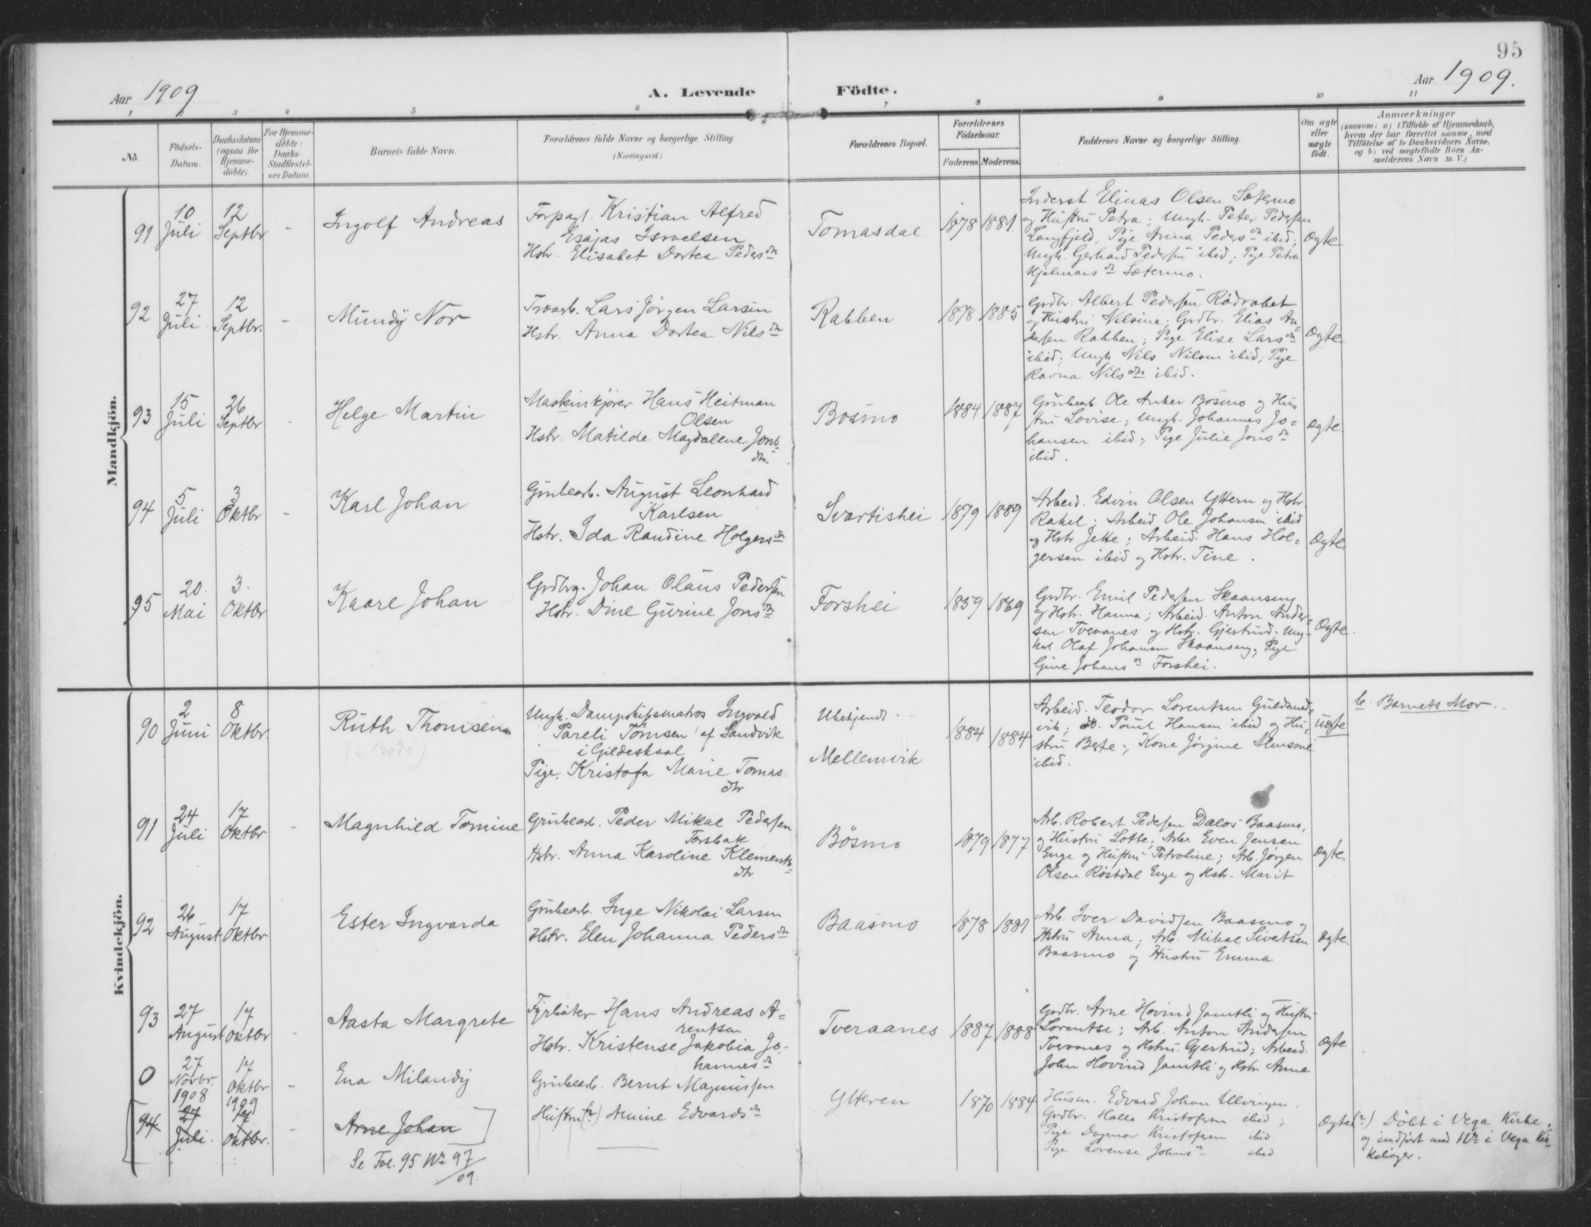 95
Aar 1909
A. Levende Födte.
Aar 1909.
1 2 3 4 5 6 7 8 9 10 11
No.
Födsels-
Datum.
Daabsdatum
(ogsaa for
Hjemme-
döbte).
For Hjemme-
döbte:
Daabs-
Stadfæstel-
ses Datum
Barnets fulde Navn.
Forældrenes fulde Navne og borgerlige Stilling
(Næringsvei.)
Forældrenes Bopæl.
Forældrenes
Födselsaar.
Faderens. Moderens.
Faddernes Navne og borgerlige Stilling.
Om ægte
eller
uægte
født.
Anmærkninger
(saasom: a) i Tilfælde af Hjemmedaab,
hvem der har forrettet samme, med
Tilføielse af to Daabsvidners Navne,
og b) ved uægtefödte Börn An-
melderens Navn m. V.)
Mandkjön.
91
10
Juli
12
Septbr
-
Ingolf Andreas
Forpagt. Kristian Alfred
Esajas Israelsen
Hstr. Elisabet Dortea Pedersdtr
Tomasdal
1878
1881
Inderst Elinas Olsen Sætermo
og Hustru Petra; Ungk. Peter Pedersen
Langfjeld, Pige Anna Pedersdtr ibid;
Ungk. Gerhard Pedersen ibid; Pige Petra
Hjelmarsdtr Sætermo.
Ægte
92
27
Juli
12
Septbr.
-
Mundy Nor
Træarb. Lars Jörgen Larsen
Hstr. Anna Dortea Nilsdtr
Rabben
1878
1885
Grdbr. Albert Pedersen
og Hustru Nilsine; Grdbr. Elias An-
dersen Rabben; Pige Elise Larsdtr
ibid; Ungk Nils Nilsen ibid; Pige
Ravna Nilsdtr ibid.
Ægte
93
15
Juli
26
Septbr
-
Helge Martin
Maskinkjører Hans Heitman
Olsen
Hstr. Matilde Magdalene Jons-
dtr.
Bosmo
1884
1887
Grubearb. Ole Anker Bosmo og Hus
tru Lovise; Ungk. Johannes Jo-
hansen ibid; Pige Julie Jonsdtr
ibid.
Ægte
94
5
Juli
3
Oktbr
-
Karl Johan
Grubearb. August Leonhard
Karlsen
Hstr. Ida Randine Holgersdtr
Svartishei
1879
1889
Arbeid. Edvin Olsen Yttern og Hstr.
Rakel; Arbeid Ole Johansen ibid
og Hstr Jette; Arbeid. Hans Hol-
gersen ibid og Hstr. Tine.
Ægte
95
20.
Mai
3.
Oktbr
Kaare Johan
Grdbrg. Johan Olaus Pedersen
Hstr. Dine Gurine Jonsdtr
Forshei
1859
1869
Grdbr. Emil Pedersen Skaanseng
og Hstr. Hanna; Arbeid. Anton Ander-
sen Tveraanes og Hstr. Gjertrud; Ung-
karl Olaf Johansen Skaanseng; Pige
Gine Johansdtr Forshei.
Ægte.
Kvindekjön.
90
2
Juni
8
Oktbr.
Ruth Thomsen
(i Bodø)
Ungk. Dampskibsmatros Ingvald
Pareli Tomsen af Sandvik
i Gildeskaal
Pige. Kristofa Marie Tomas-
dtr
Ubekjendt.
Mellemvik
1884
1884
Arbeid. Teodor Lorentsen Guldsmed-
vik; do. Paul Hansen ibid og Hu-
stru Berte; Kone Jörgine Monsen
ibid.
Uægte
b. Barnets Mor.
91
24
Juli
17
Oktbr
-
Magnhild Tomine
Grubearb. Peder Mikal Pedersen
Forsbak
Hstr. Anna Karoline Klements-
dtr
Bösmo
1879
1877
Arb. Robert Pedersen Dalos Baasmo,
og Hustru Lotte; Arbr Even Jensen
Enge og Hustru Petroline; Arb. Jörgen
Olsen Röstdal Enge og Hstr. Marit
Ægte.
92
26
August
17
Oktbr
Ester Ingvarda
Grubearb. Inge Nikolai Larsen
Hstr. Elen Johanna Pedersdtr
Baasmo
1878
1881
Arb. Iver Davidsen Baasmo, og
Hstru Anna; Arb. Mikal Sivertsen
Baasmo og Hustru Emma
Ægte.
93
27
August
17
Oktbr
-
Aasta Margrete
Fyrböter Hans Andreas A-
rentsen
Hstr. Kristense Jakobia Jo-
hannesdtr
Tveraanes
1887
1888
Grdbr. Arne Hovind Jamtli og Hustru
Lorentse; Arb. Anton Andersen
Tveraanes og Hstru. Gjertrud; Arbeid.
John Hovind Jamtli og Hstr Anna
Ægte
0
27
Novbr.
1908
17
Oktbr
1909
-
Ena Milandy
Grubearb. Bernt Magnussen
Hustru (2) Amine Edvardsdtr
Ytteren
1870
1884
Husm. Edvard Johan Ulvingen.
Grdbr. Halle Kristofersen ibid;
Pige Dagmar Kristofersen ibid
Pige Lorense Johnsdtr ibid
Ægte
(2) Döbt i Vega Kirke.
og indført med No i Vega Kir-
kebøger.
94
27
Juli.
17
Oktbr.
Arne Johan
Se Fol. 95 No 97/09.